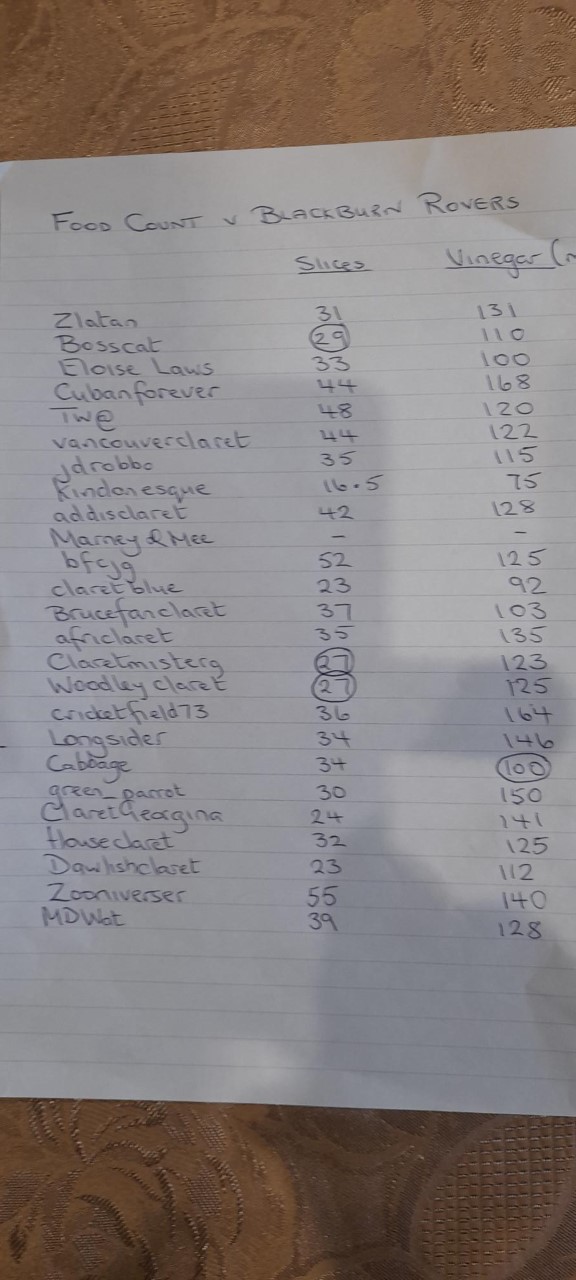 FOOD COUNT v BLACKBURN ROVERS
Slices Vinegar (m
Zlatan 31 131
Bosscat 29 110
Eloise Laws 33 100
Cubanforever 44 168
TW@ 48 120
vancouverclaret 44 122
jdrobbo 35 115
Kindonesque 16.5 75
addisclaret 42 128
Marney & Mee - -
bfcjg 52 125
claretblue 23 92
Brucefanclaret 37 103
africlaret 35 135
Claretmisterg 27 123
Woodley claret 27 125
cricketfield73 36 164
Longsider 34 146
Cabbage 34 100
green_parrot 30 150
ClaretGeorgina 24 141
Houseclaret 32 125
Dawlishclaret 23 112
Zooniverser 55 140
MDWat 39 128